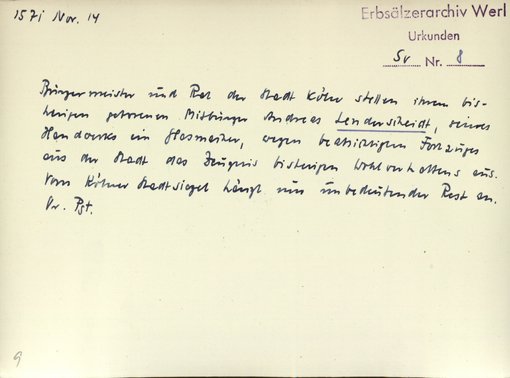 1571 Nov. 14
Erbsälzerarchiv Werl
Urkunden
Sv Nr. 8
Bürgermeister und Rat der Stadt Köln stellen ihrem bis-
herigen geborenen Mitbürger Andreas Lenderscheidt, seines
Handwerks ein Glasmeister, wegen beabsichtigten Fortzuges
aus der Stadt das Zeugnis bisherigen Wohlverhaltens aus.
Vom Kölner Stadtsiegel hängt nur unbedeutender Rest an.
Or. Pgt.
9